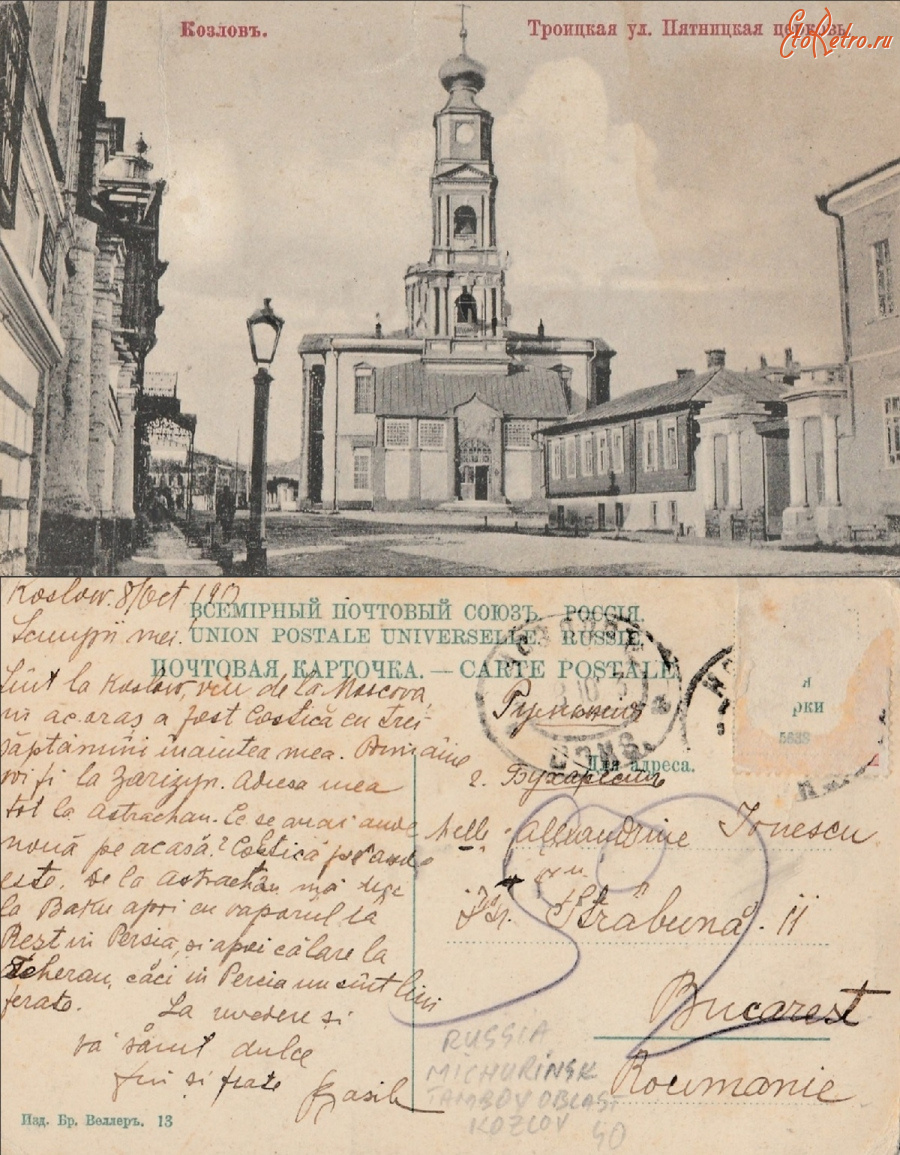 Козловъ.
Троицкая ул. Пятницкая церковь.
EtoRetro.ru
Koslow. 8/Oct 191
Scumpii mei.
ВСЕМІРНЫЙ ПОЧТОВЫЙ СОЮЗЪ. РОССІЯ.
UNION POSTALE UNIVERSELLE. RUSSIE.
ПОЧТОВАЯ КАРТОЧКА. — CARTE POSTALE
Sînt la Koslow, viu de la Moscova,
în acoraș a fost Costică cu trei
săptămîni înaintea mea. Poimâine
voi fi la Zarizyn. Adresa mea
tot la Astrachan. Ce se mai aude
nouă pe acasă? Costică pe unde
este. De la Astrachan mă duc
la Baku apoi cu vaporul la
Rest in Persia, și apoi călare la
Teheran, căci in Persia nu sînt linii
ferate. La revedere și
vă sărut dulce
fiu și frate
Basile
Румынія
Для адреса.
г. Бухарестъ
рки
5638
Melle Alexandrine Ionescu
Str. Străbună. 11
Bucarest
Roumanie
RUSSIA
MICHURINSK
TAMBOV OBLAST
KOZLOV
40
Изд. Бр. Веллеръ. 13